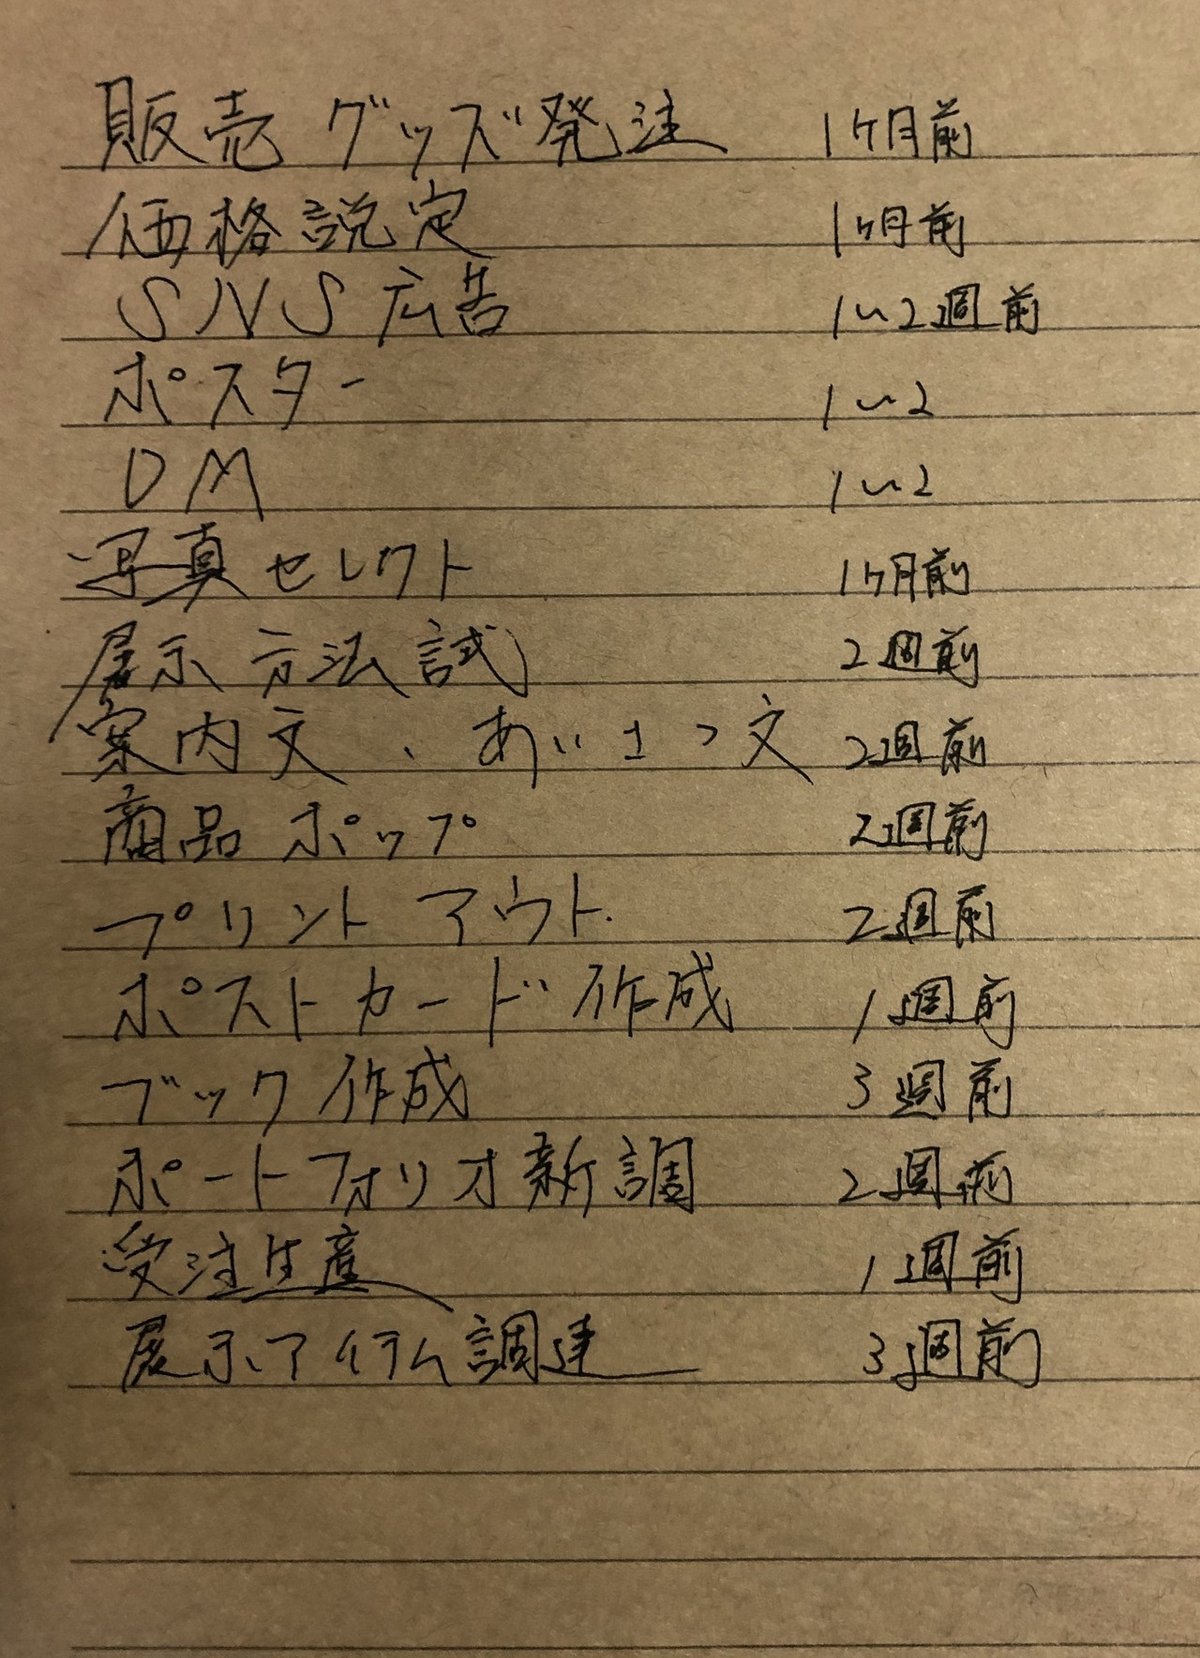 販売グッズ発注 1ヶ月前
価格説定 1ヶ月前
SNS広告 1〜2週前
ポスター 1〜2
DM 1〜2
写真セレクト 1ヶ月前
展示方法試 2週前
案内文、あいさつ文 2週前
商品ポップ 2週前
プリントアウト. 2週前
ポストカード作成 1週前
ブック作成 3週前
ポートフォリオ新調 2週前
受注生産 1週前
展示アイテム調達 3週前